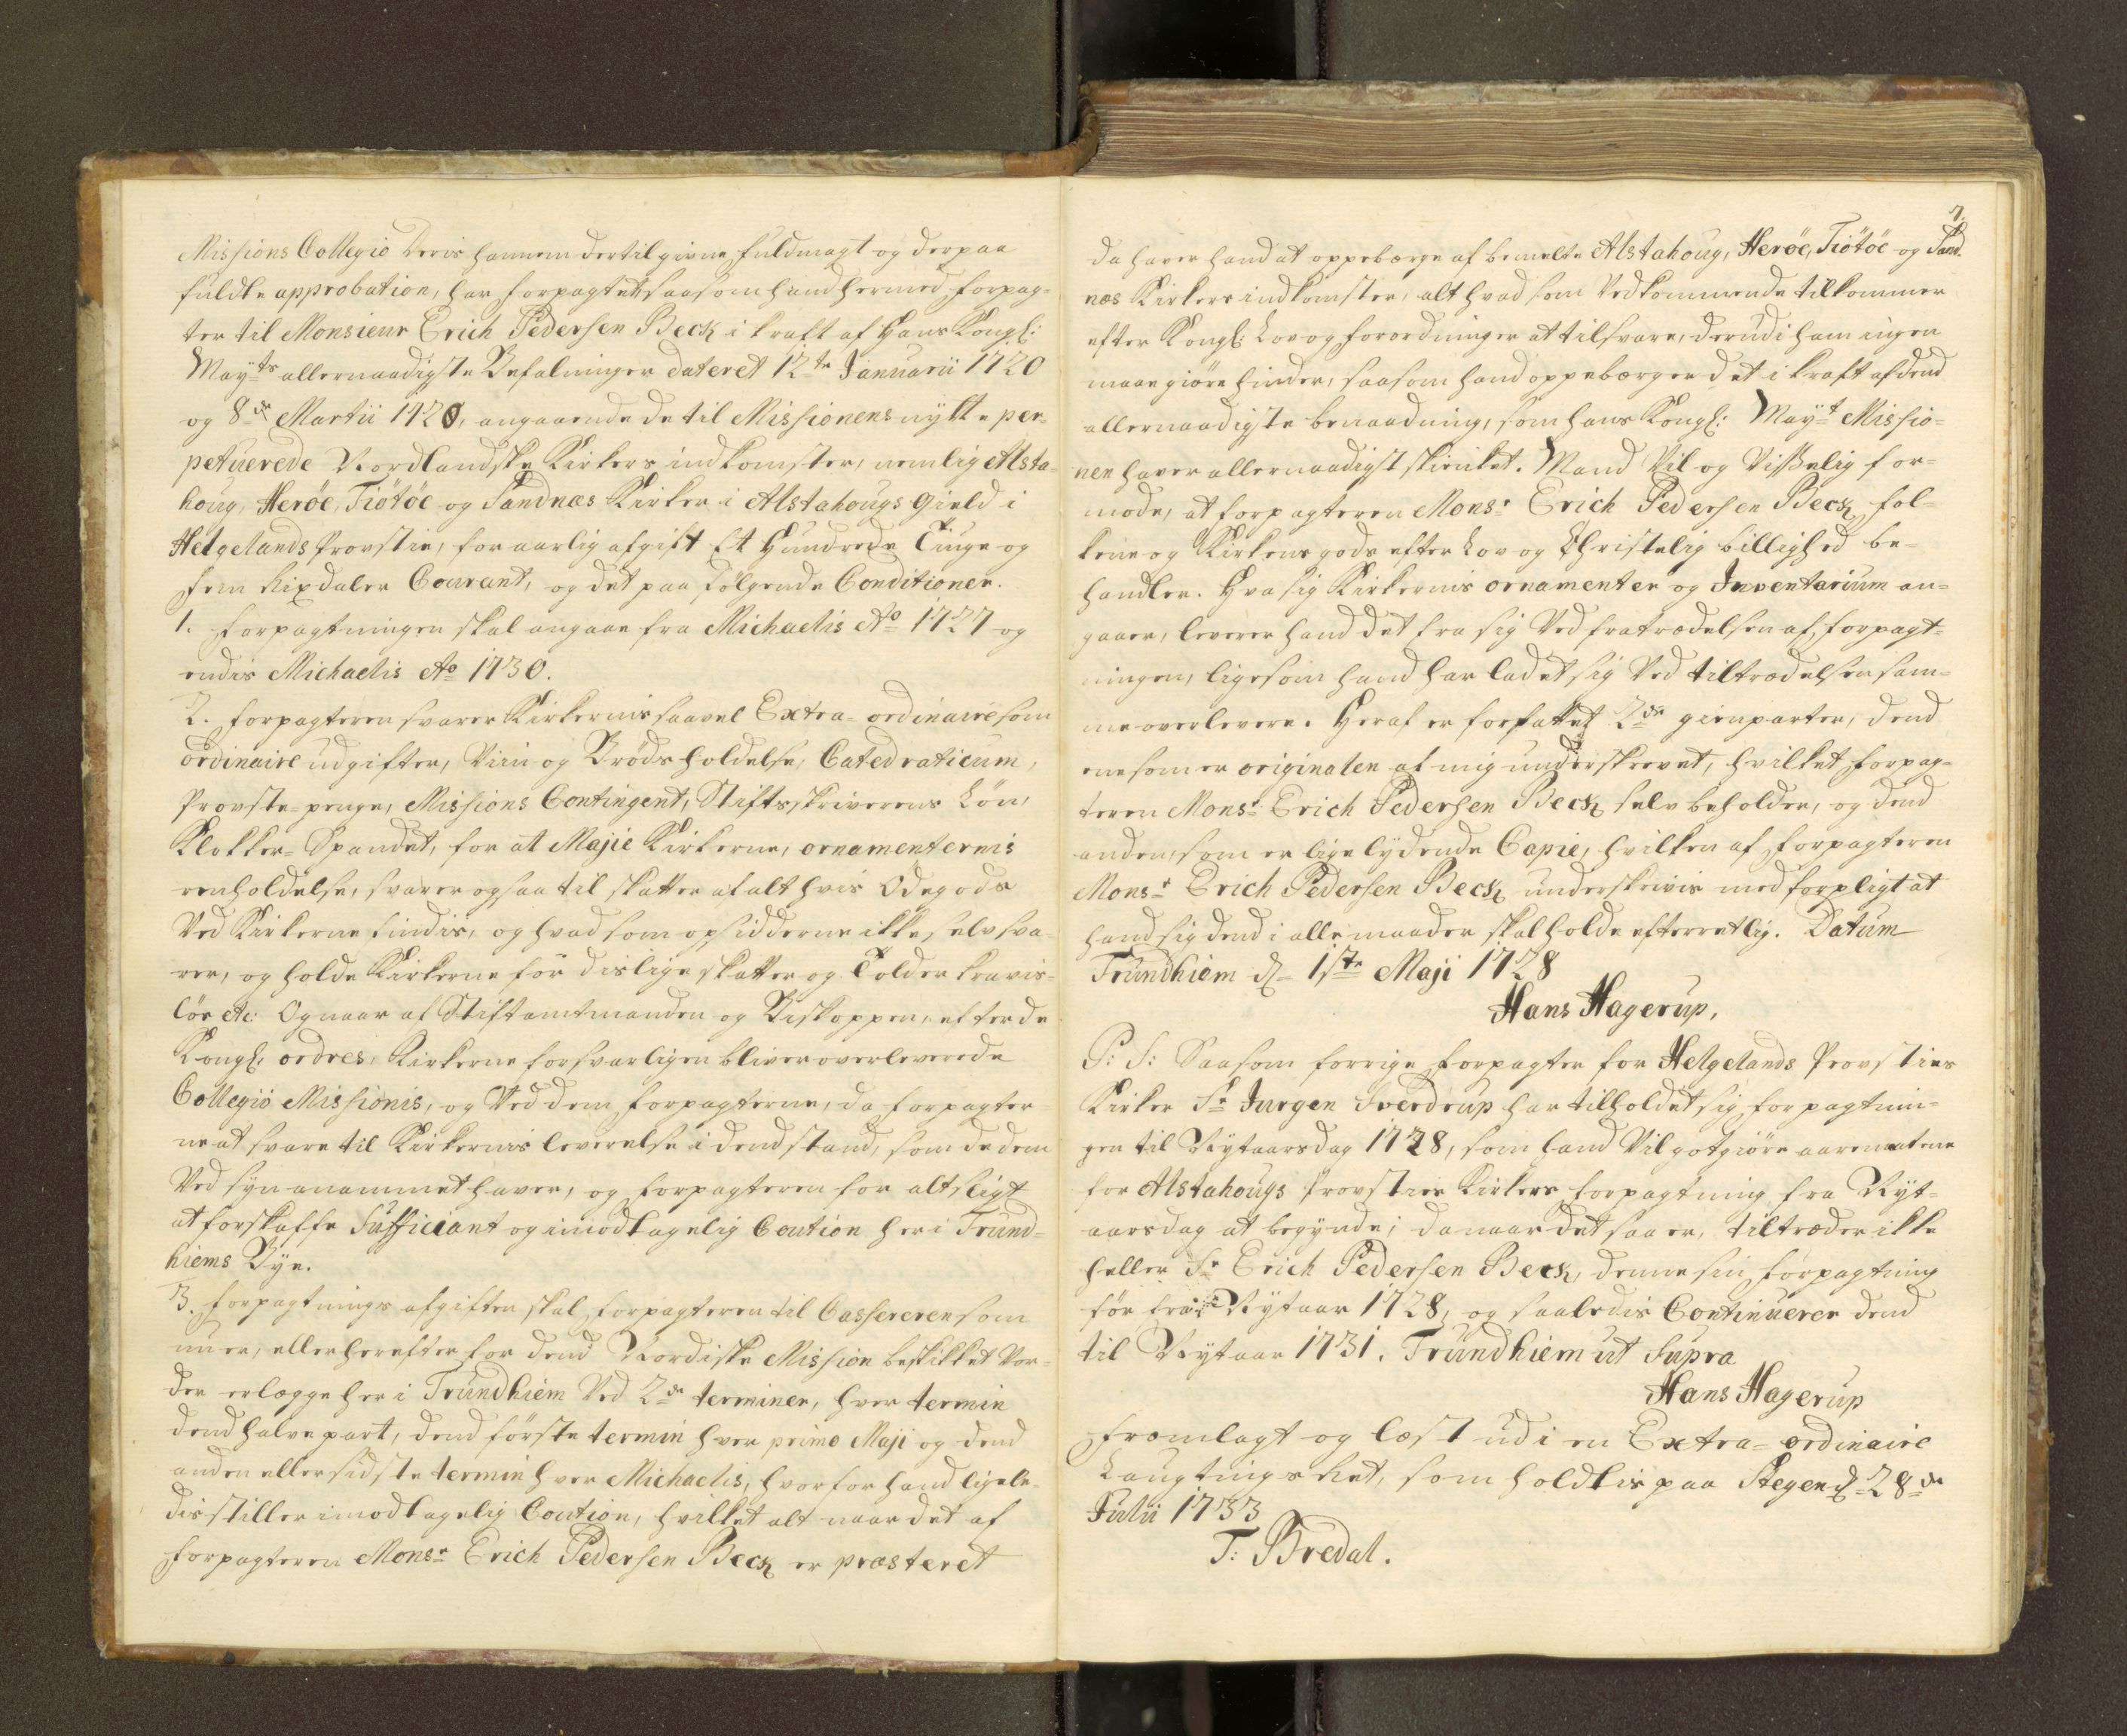 Missions Collegio Deris hannem dertil givne fuldmagt og derpaa
fuldte approbation, har forpagtet, saasom hand hermed forpag-
ter til Monsieur Erich Pedersen Beck i kraft af Hans Kongl:
Mayts allernaadigste Befalninger dateret 12te Januarii 1720
og 8de Martii 1720, angaaende de til Missionens nytte per-
petuerede Nordlandske Kirkers indkomster, nemlig Alsta-
houg, Herøe, Tiøtøe og Sandnæs Kirker i Alstahougs gield i
Helgelands Provstie, for aarlig afgift Et Hundrede Tiuge og
fem Rixdaler Courant, og det paa følgende Conditioner.
1. Forpagtningen skal angaae fra Michaelis Ao 1727 og
endis Michaelis Ao 1730.
2. Forpagteren svarer Kirkernis saavel Extra-ordinaire som
ordinaire udgifter, Viin og Brøds holdelse, Catedraticum,
Provste-penge, Missions Contingent, Stiftsskriverens Løn,
Klokker-Spandet, for at Majie Kirkerne, ornamenternis
renholdelse, svarer og saa til skatter af alt hvis Ødegods
Ved Kirkerne findis, og hvad som opsidderne ikke selv sva-
rer, og holde Kirkerne for dislige skatter og Tolder kravis-
løs etc: Og naar af Stiftamtmanden og Biskoppen, efter de
Kongl: ordres, Kirkerne forsvarligen bliver overleverede
Collegio Missionis, og Ved dem forpagterne, da forpagter-
ne at svare til Kirkernis leverelse i dend stand, som de dem
Ved syn anammet haver, og forpagteren for alt sligt
at forskaffe Sufficiant og imodtagelig Coution her i Trund-
hiems Bye.
3. Forpagtnings afgiften skal forpagteren til Cassereren som
nu er, eller herefter for dend Nordiske Mission beskikket Vor-
der erlægge her i Trundhiem Ved 2de terminer, hver termin
dend halve part, dend første termin hver primo Maji og dend
anden eller sidste termin hver Michaelis, hvorfor hand ligele-
dis stiller imodtagelig Coution, hvilket alt naar det af
forpagteren Monsr Erich Pedersen Beck er præsteret
7.
da haver hand at oppebærge af bemelte Alstahoug, Herøe, Tiøtøe og Sand-
næs Kirkers indkomster, alt hvad som Vedkommende tilkommer
efter Kongl: Lov og forordninger at tilsvare, derudi ham ingen
maae giøre hinder, saasom hand oppebærger det i kraft af dend
allernaadigste benaadning, som hans Kongl: Mayt Missio-
nen haver allernaadigst skienket. Mand Vil og Visselig for-
mode, at forpagteren Monsr Erich Pedersen Beck fol-
kene og Kirkens gods efter Lov og Christelig billighed be-
handler. Hva sig Kirkernis ornamenter og Inventarium an-
gaaer, leverer hand det fra sig Ved fratrædelsen af forpagt-
ningen, ligesom hand har ladet sig Ved tiltrædelsen sam-
me overlevere. Heraf er forfattet 2de gienparter, dend
ene som er originalen af mig underskrevet, hvilket forpag-
teren Monsr Erich Pedersen Beck selv beholder, og dend
anden, som er lige lydende Copie, hvilken af forpagteren
Monsr Erich Pedersen Beck underskrivis med forpligt at
hand sig dend i alle maader skal holde efterretlig. Datum
Trundhiem d. 1ste Maji 1728
Hans Hagerup.
P: S: Saasom forrige forpagter for Helgelands Provsties
Kirker Sr Jurgen Sverdrup har tilholdet sig forpagtnin-
gen til Nytaarsdag 1728, som hand Vil gotgiøre
for Alstahougs Provsties Kirkers forpagtning fra Nyt-
aarsdag at begynde; da naar det saa er, tiltræder ikke
heller Sr Erich Pedersen Beck, denne sin forpagtning
før fra Nytaar 1728, og saaledis Continuerer dend
til Nytaar 1731. Trundhiem ut Supra
Hans Hagerup
Fremlagt og læst udi en Extra-ordinaire
Laugtings Ret, som holdtis paa Stegen d. 28de
Julii 1733
T: Bredal.